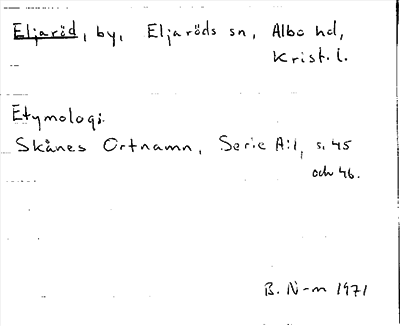 Eljaröd, by, Eljaröds sn, Albo hd,
Krist. l.
Etymologi.
Skånes Ortnamn, Serie A:1, s. 45
och 46.
B. N-m 1971